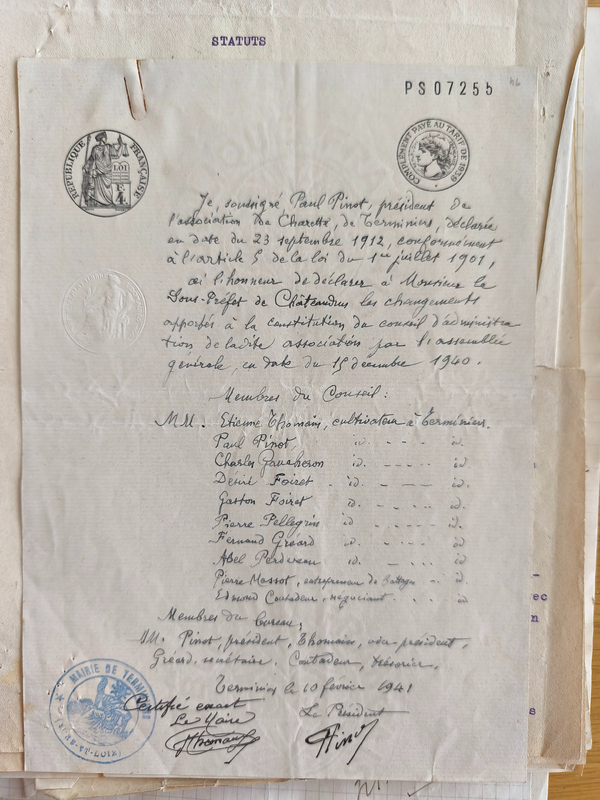 STATUTS
PS07255
46
RÉPUBLIQUE FRANÇAISE
LOI
F
4
COMPLÉMENT PAYÉ AU TARIF DE 1939
Je, soussigné, Paul Pinot, président de
l'association de Charette, de Terminiers, déclarée
en date du 23 septembre 1912, conformément
à l'article 5 de la loi du 1er juillet 1901,
ai l'honneur de déclarer à Monsieur le
Sous-Préfet de Châteaudun les changements
apportés à la constitution du conseil d'administra
tion de ladite association par l'assemblée
générale, en date du 15 décembre 1940.
Membres du Conseil :
MM. Etienne Thomain, cultivateur à Terminiers.
Paul Pinot, id. - - - - id.
Charles Gaucheron id. - - - - id.
Désiré Foiret . id. - - - id.
Gaston Foiret id. - - - - id.
Pierre Pellegrin id - - - - id.
Fernand Gréard id. - - - id
Abel Perdereau id. - - - id
Pierre Massot, entrepreneur de battage - - id
Edmond Coutadeur, négociant . . . id
Membres du bureau,
MM. Pinot, président, Thomain, vice-président,
Gréard, secrétaire. Coutadeur, trésorier.
Terminiers le 10 février 1941
Certifié exact Le Président
Le Maire
Thomain Pinot
MAIRIE DE TERMINIERS
(EURE-ET-LOIR)
ec
n
s